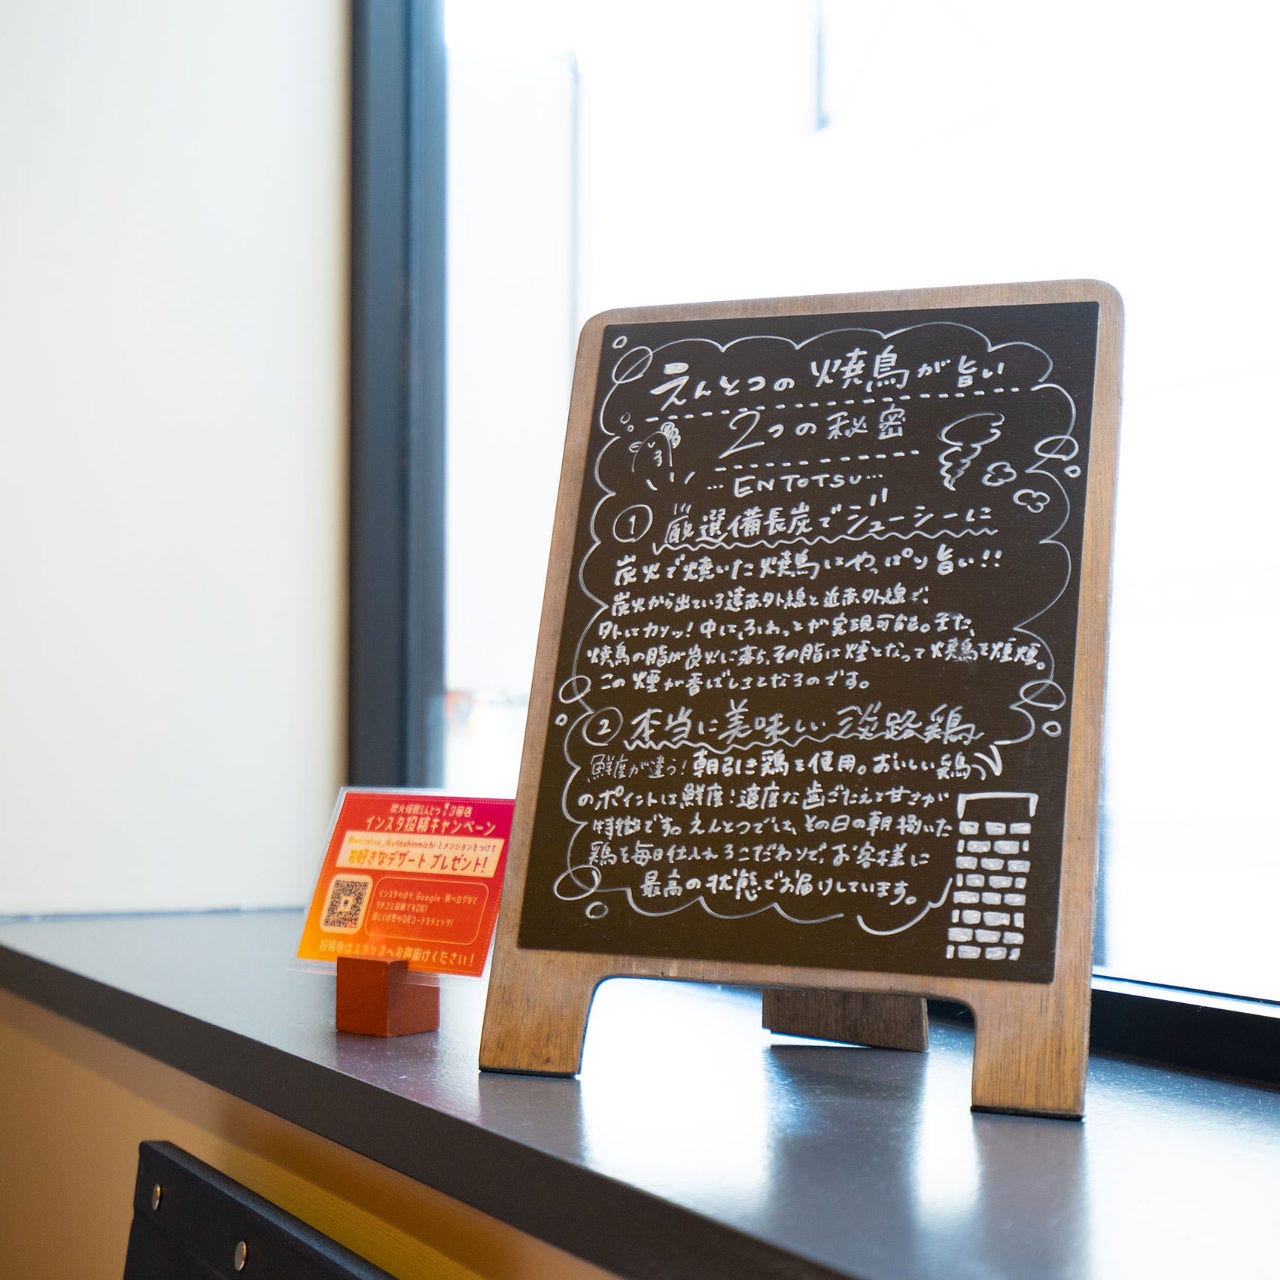 えんとつの焼鳥が旨い
2つの秘密
…ENTOTSU…
① 厳選備長炭でジューシーに
炭火で焼いた焼鳥はやっぱり旨い!!
炭火から出ている遠赤外線と近赤外線で、
外はカリッ!中は、ふわっとが実現可能。また、
焼鳥の脂が炭火に落ち、その脂は煙となって焼鳥を燻煙。
この煙が香ばしさとなるのです。
② 本当に美味しい淡路鶏
鮮度が違う!朝引き鶏を使用。おいしい鶏
のポイントは鮮度!適度な歯ごたえと甘さが
特徴です。えんとつでは、その日の朝捌いた
鶏を毎日仕入れるこだわりで、お客様に
最高の状態でお届けしています。
炭火焼鳥えんとつ 3号店
インスタ投稿キャンペーン
@entotsu_ikutashinmichi とメンションをつけて
お好きなデザート プレゼント!
インスタのほか、Google・食べログなど
クチコミ投稿でもOK!
詳しくは左のQRコードをチェック!
投稿後はスタッフへお声掛けください!